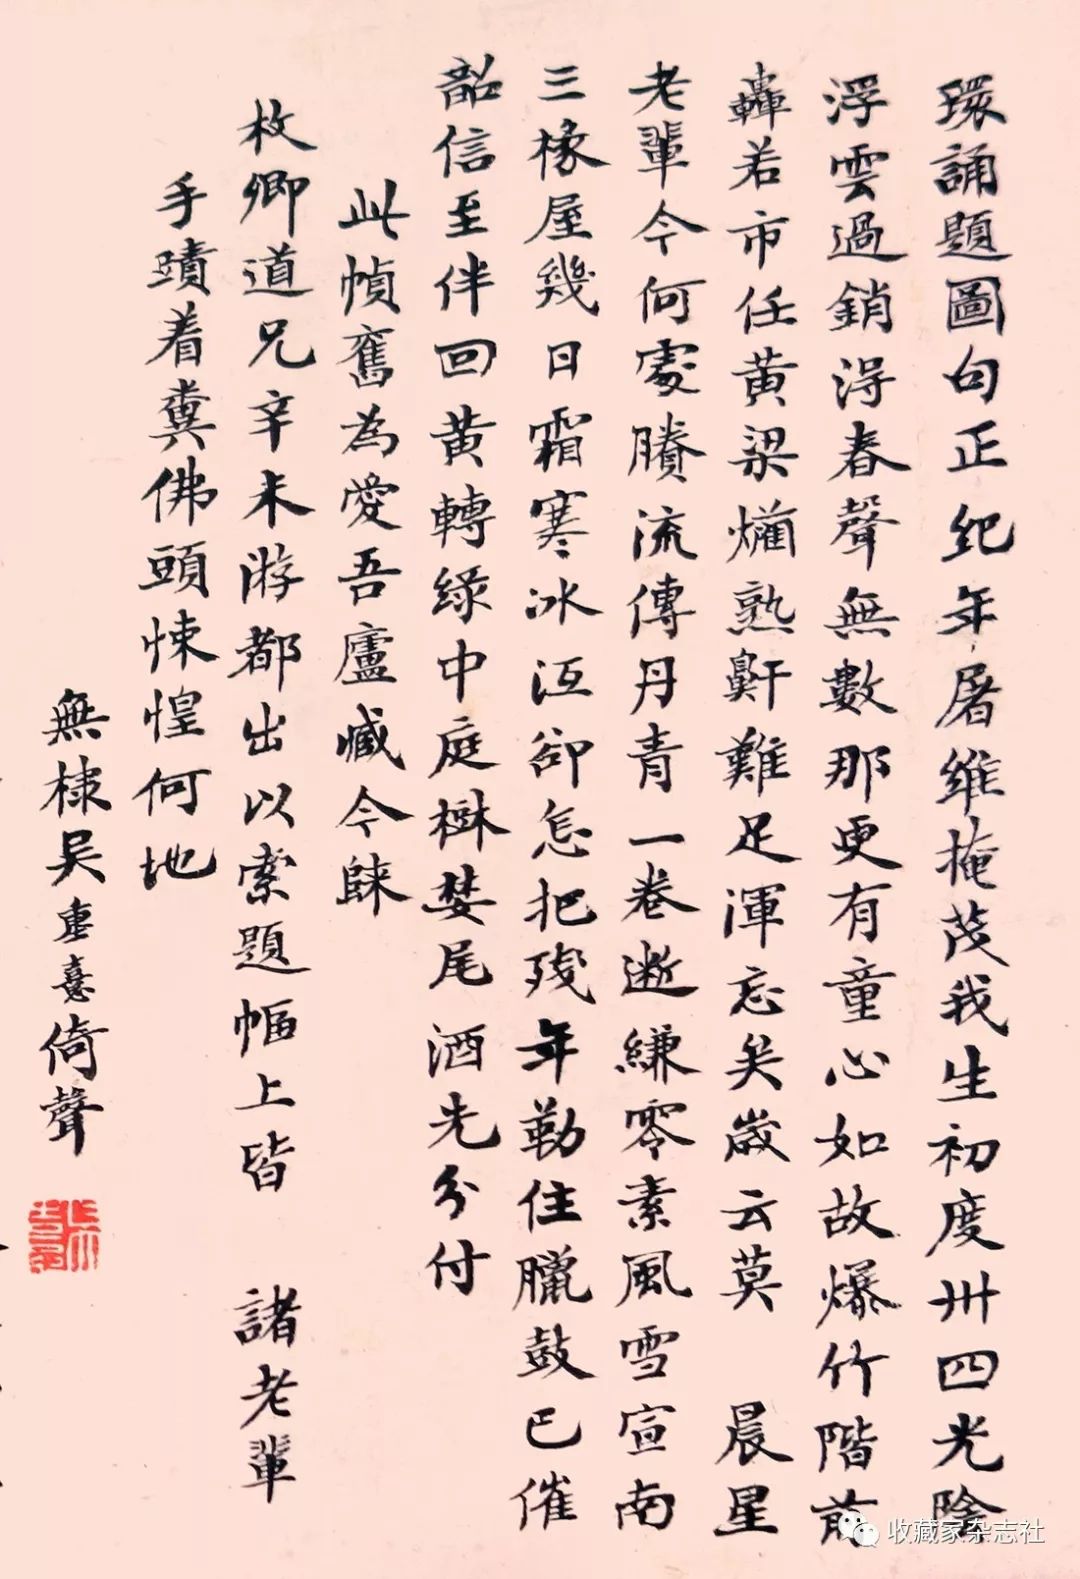 環誦題圖句正紀年屠維掩茂我生初度卅四光陰
浮雲過銷淂春聲無數那更有童心如故爆竹階前
轟若市任黃粱爛熟鼾難足渾忘矣歲云莫　晨星
老輩今何處賸流傳丹青一卷斷縑零素風雪宣南
三椽屋幾日霜寒冰沍卻怎把殘年勒住臘鼓已催
韶信至伴回黃轉綠中庭樹婪尾酒先分付
此幀舊為愛吾廬臧今歸
枚卿道兄辛未游都出以索題幅上皆　諸老輩
手蹟着糞佛頭悚惶何地
無棣吳重憙倚聲
收藏家杂志社